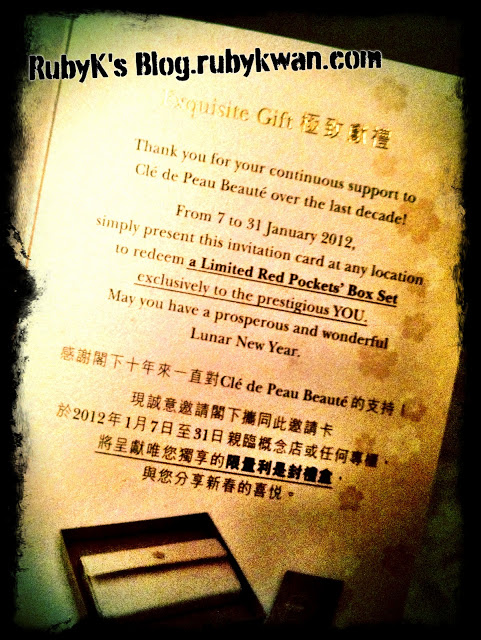 RubyK's Blog.rubykwan.com
Exquisite Gift 極致獻禮
Thank you for your continuous support to
Clé de Peau Beauté over the last decade!
From 7 to 31 January 2012,
simply present this invitation card at any location
to redeem a Limited Red Pockets' Box Set
exclusively to the prestigious YOU.
May you have a prosperous and wonderful
Lunar New Year.
感謝閣下十年來一直對Clé de Peau Beauté的支持！
現誠意邀請閣下攜同此邀請卡
於2012年1月7日至31日親臨概念店或任何專櫃，
將呈獻唯您獨享的限量利是封禮盒，
與您分享新春的喜悦。